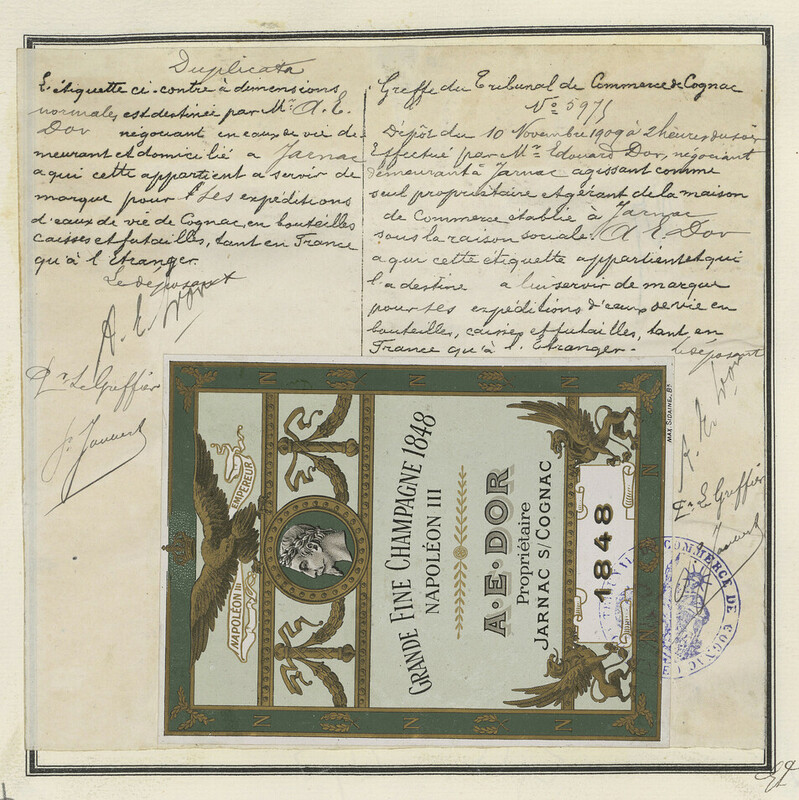 Duplicata
L'étiquette ci-contre à dimensions
normales, est destinée par Mr. A. E.
Dor négociant en eaux de vie de
meurant et domicilié à Jarnac
a qui cette appartient a servir de
marque pour Ses expéditions
d'eaux de vie de Cognac, en bouteilles
caisses et futailles, tant en France
qu'à l'Etranger.
Le déposant
A. E. Dor
Pr. Le Greffier
Greffe du Tribunal de Commerce de Cognac
No 5975
Dépôt du 10 Novembre 1909 à 2 heures du soir
Effectué par Mr. Edouard Dor, négociant
demeurant à Jarnac agissant comme
seul propriétaire et gérant de la maison
de Commerce établie à Jarnac
sous la raison sociale: A E Dor
a qui cette étiquette appartient et qui
l'a destine a lui servir de marque
pour ses expéditions d'eaux de vie en
bouteilles, caisses et futailles, tant en
France qu'à l'Etranger. -
Le déposant
A. E. Dor
Pr. Le Greffier
NAPOLÉON III EMPEREUR
N N N N N N
GRANDE FINE CHAMPAGNE 1848
NAPOLÉON III
A·E·DOR
Propriétaire
JARNAC S/COGNAC
1848
MAX. SIDAINE. Bx
COMMERCE DE COGNAC